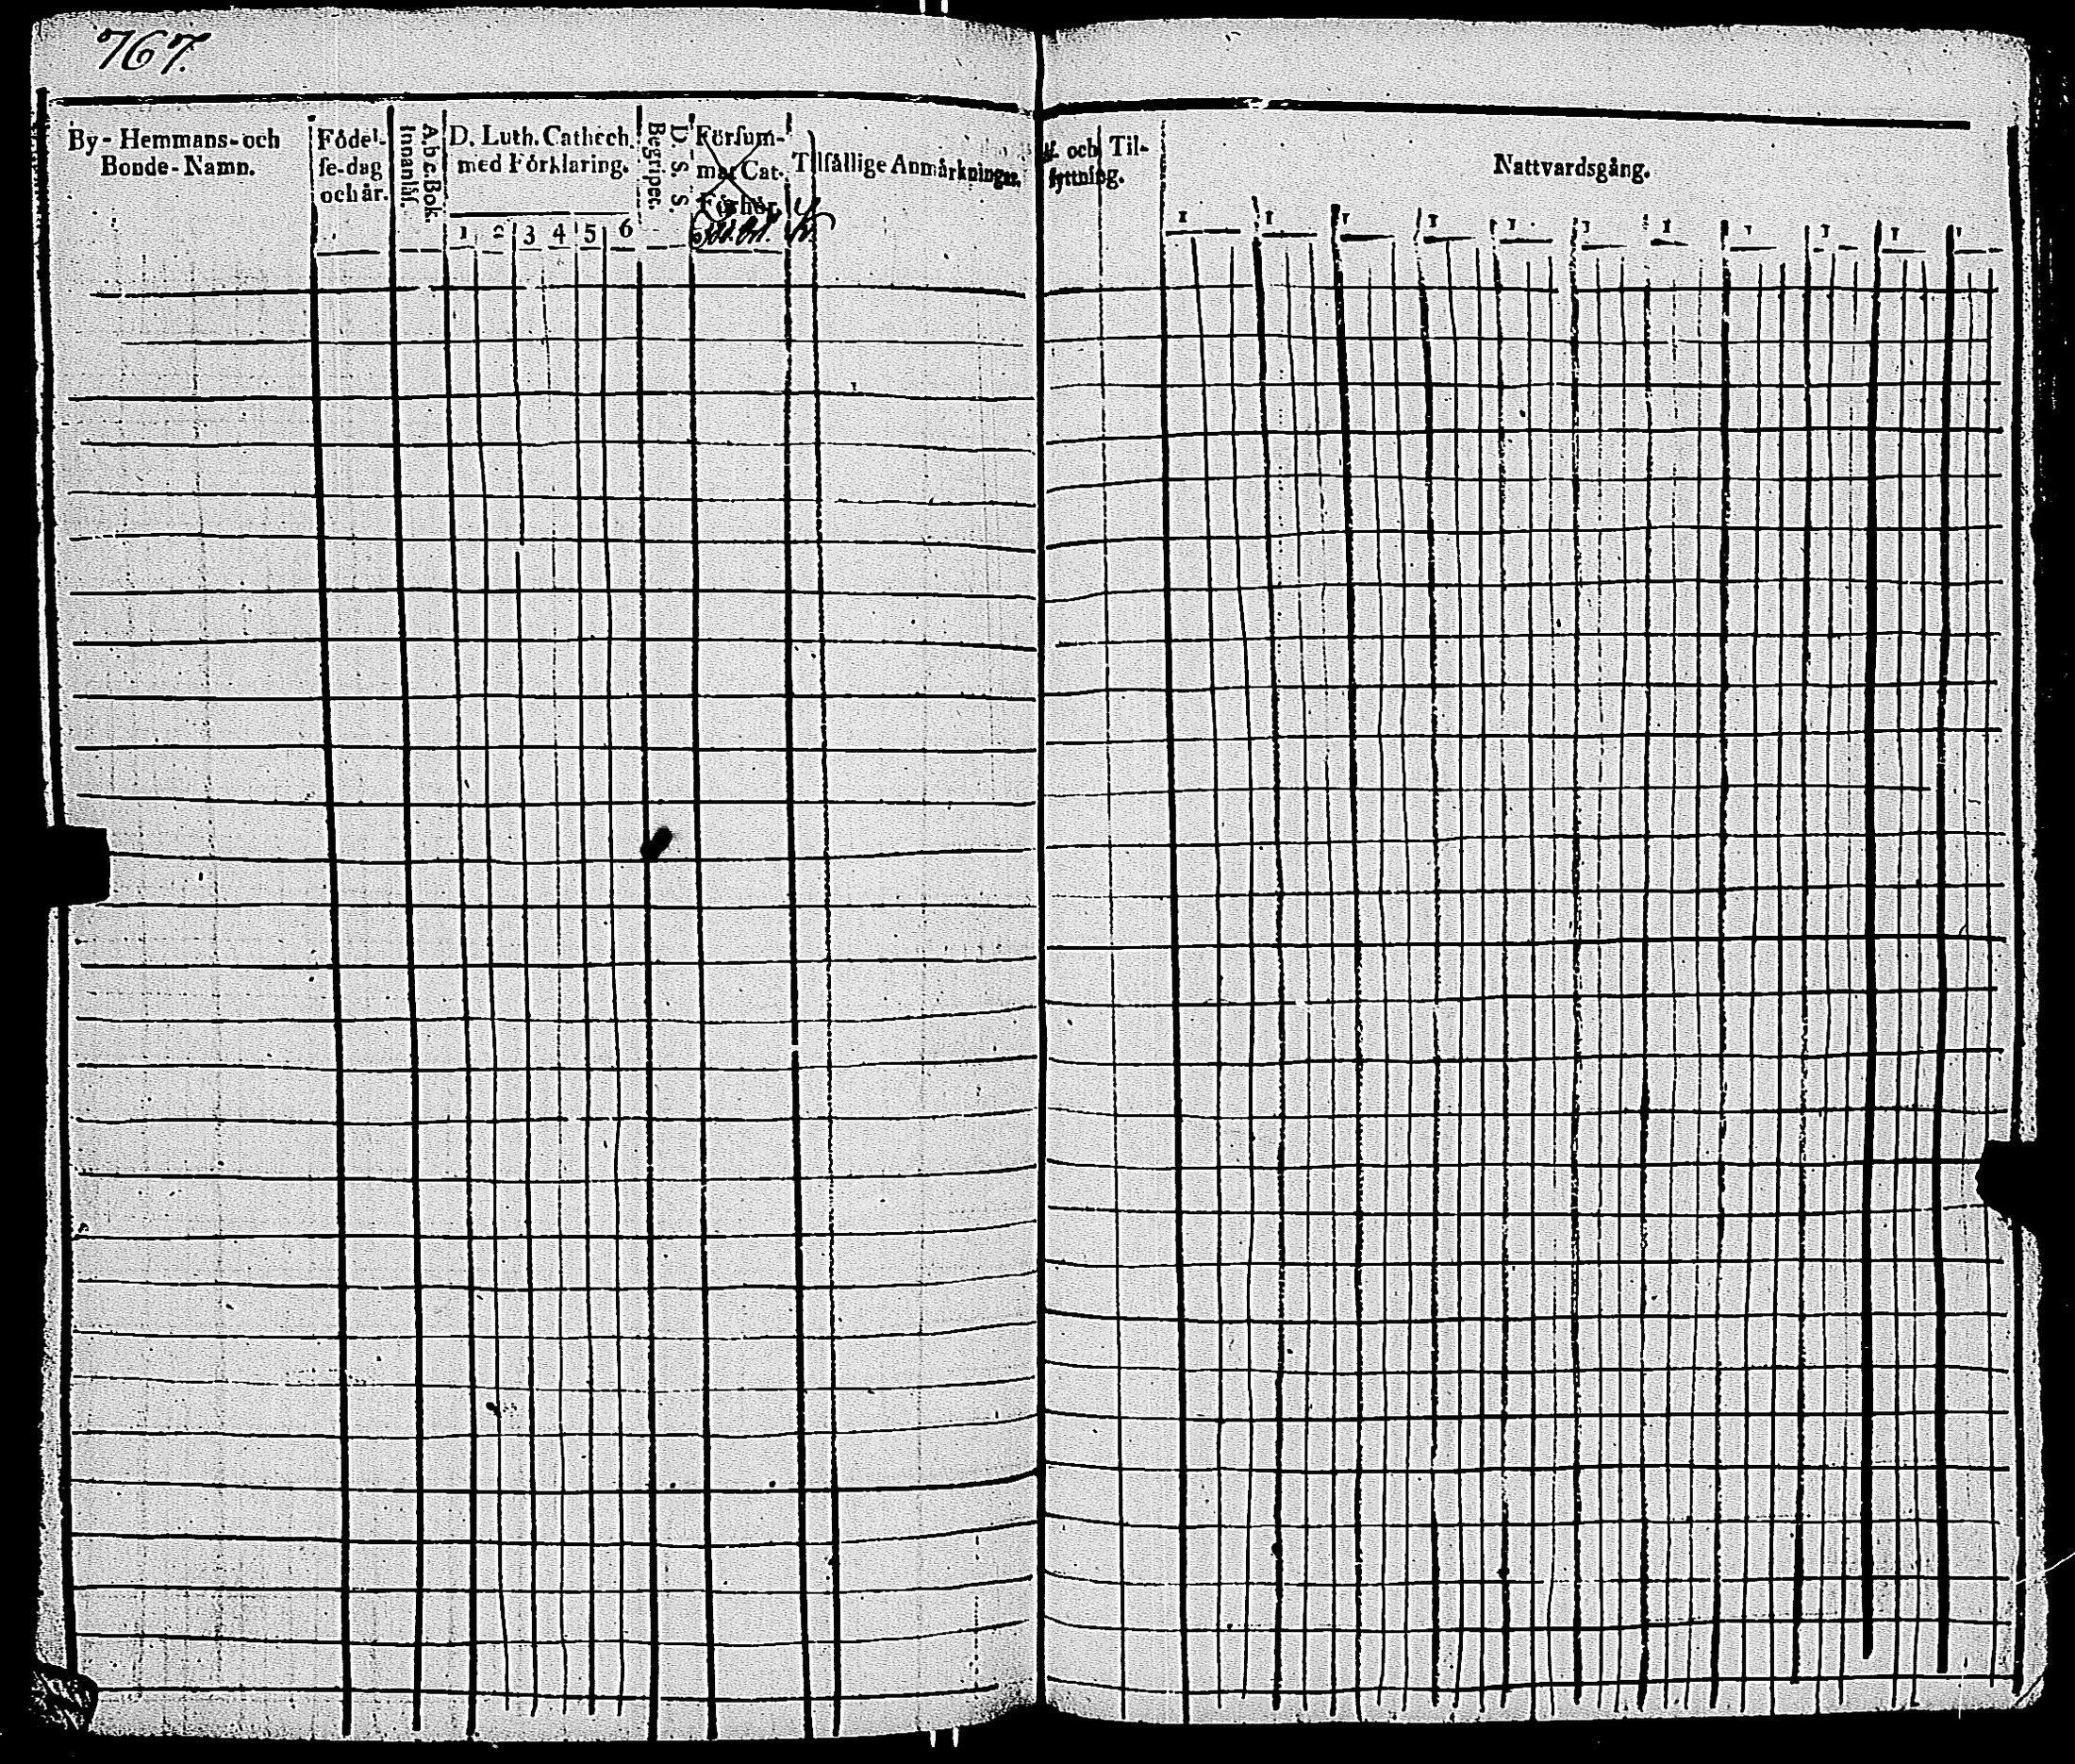 767.
By- Hemmans- och
Bonde-Namn.
Födel-
se-dag
och år.
A.b.c.Bok.
Innanläs.
D. Luth. Cathech.
med Förklaring.
1 2 3 4 5 6
D. S. S.
Begripet.
Försum-
mar Cat.
Förhör.
Tilfällige Anmärkningar.
f. och Til-
fyttning.
Nattvardsgång.
1 1 1 1 1 1 1 1 1 1 1